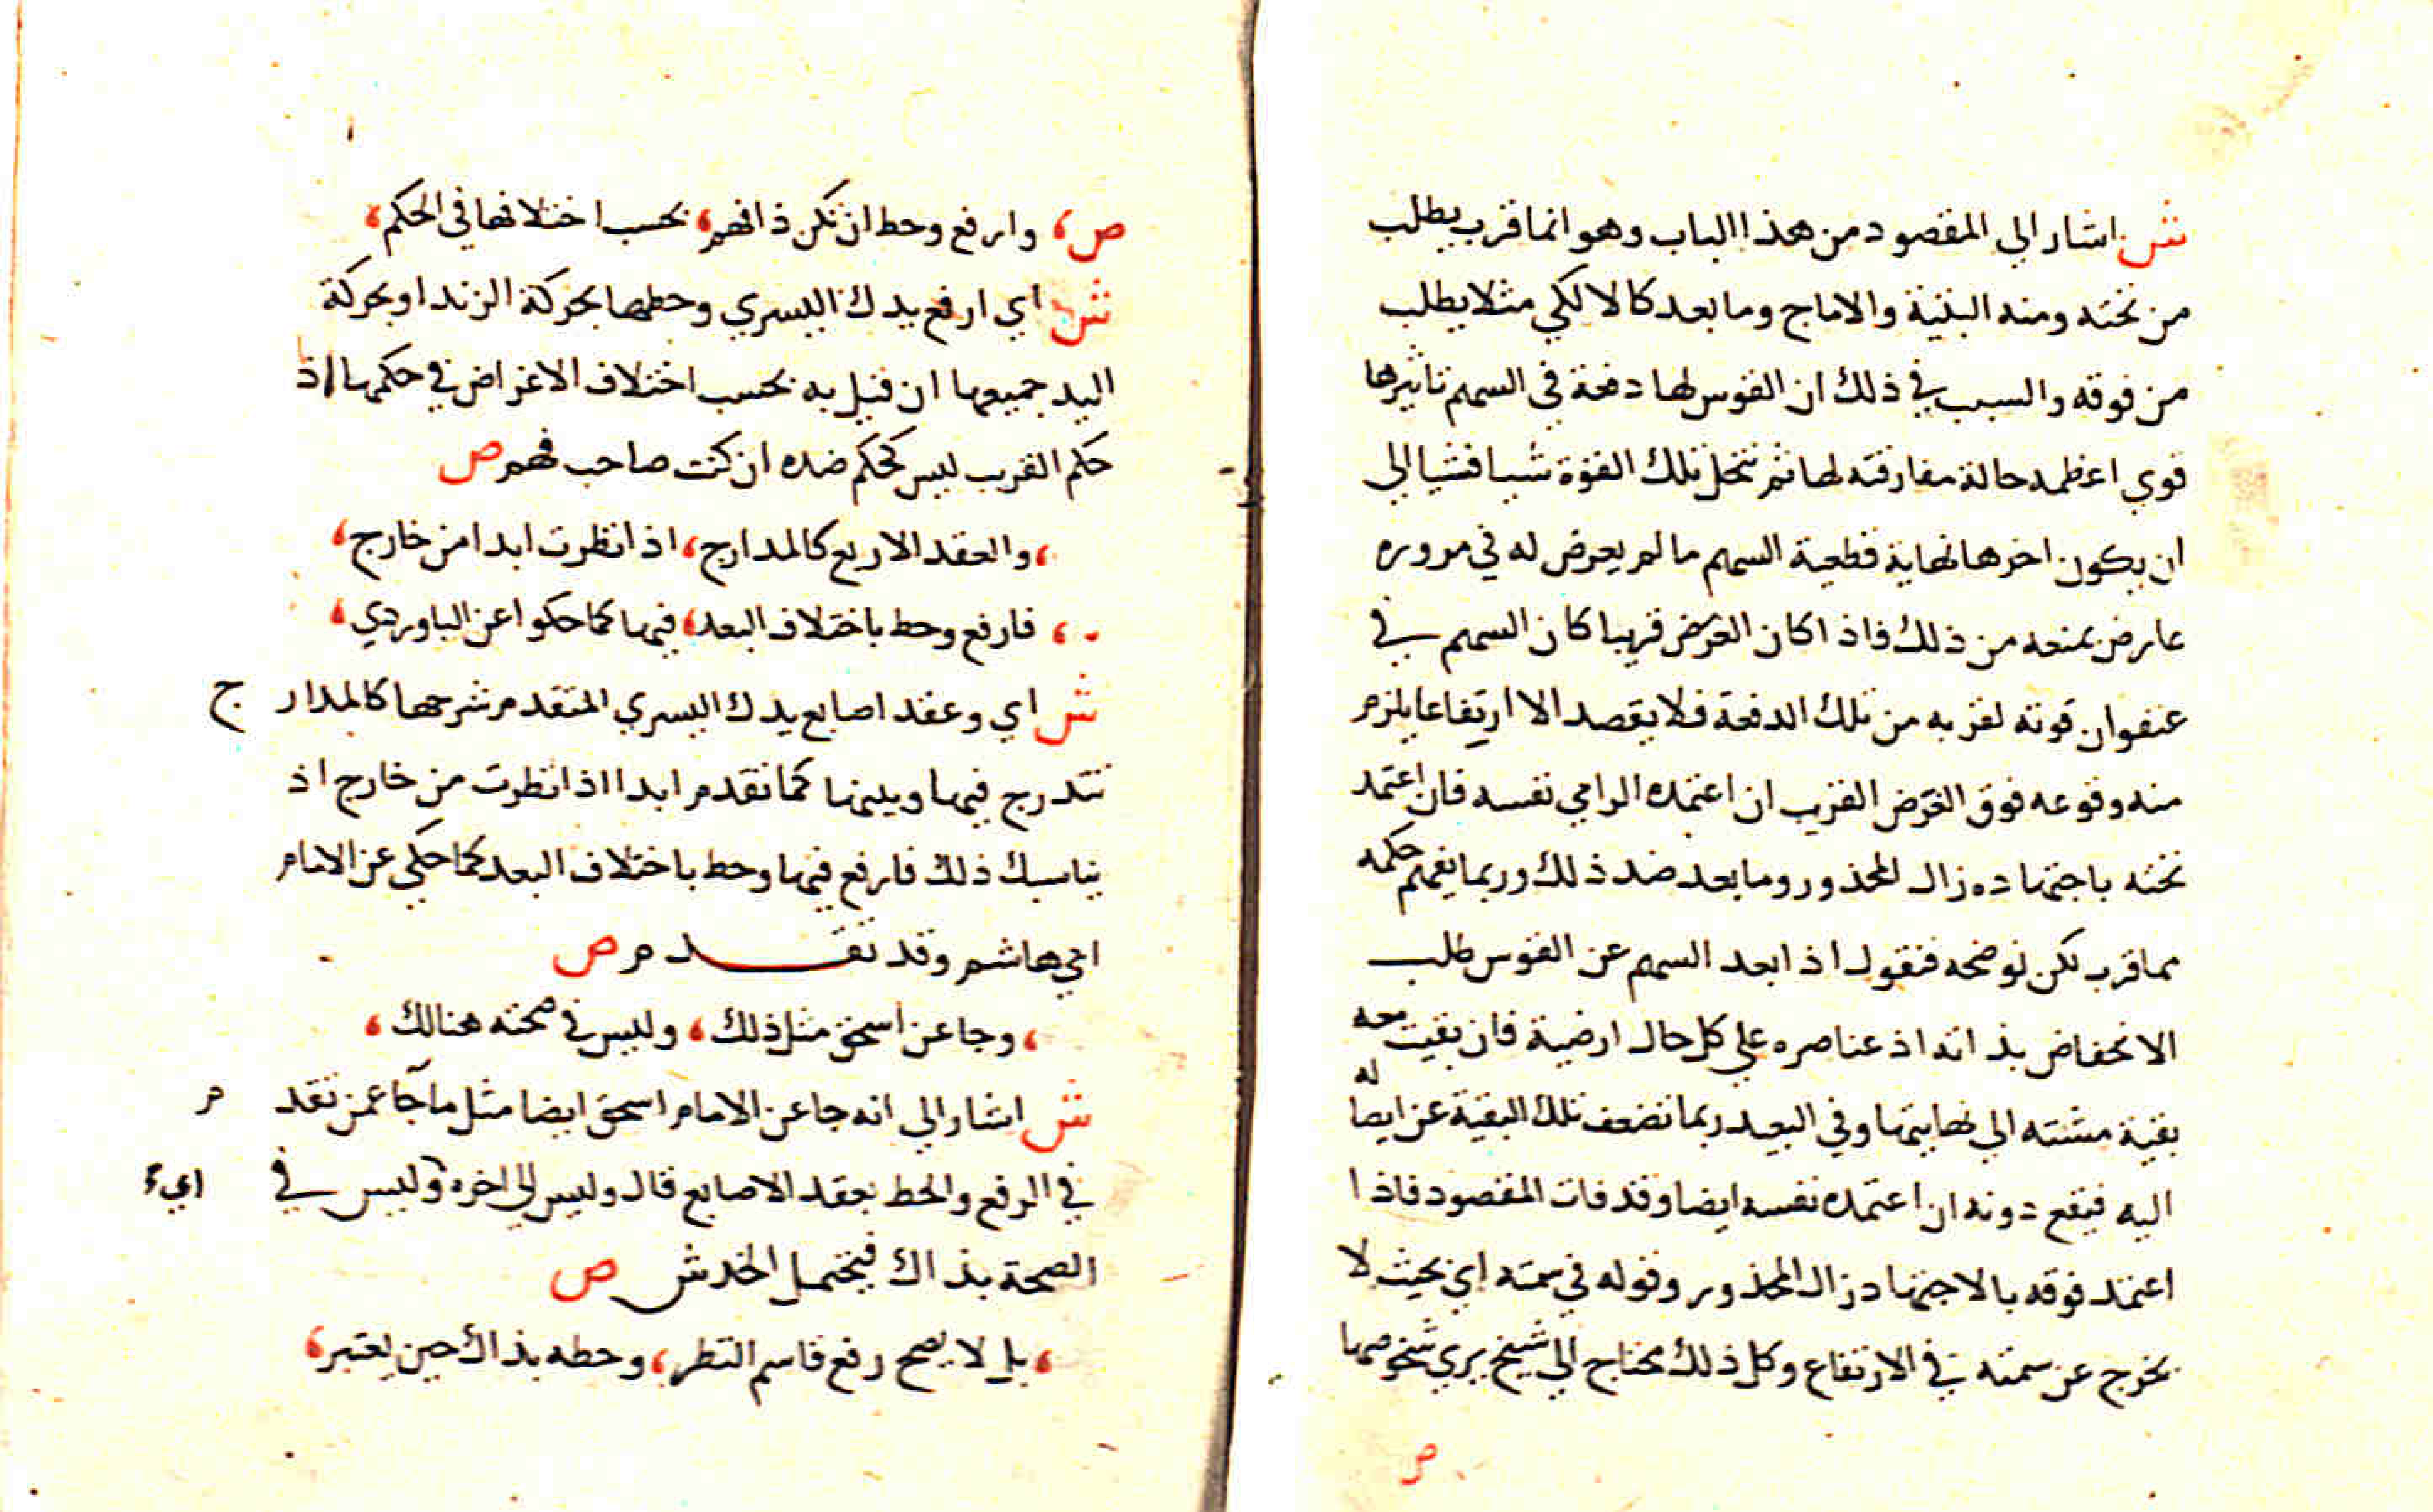 ش اشار الي المقصود من هذا الباب وهو انما قرب يطلب
من تحته ومنه البتية والاماج وما بعد كالالكي مثلا يطلب
من فوقه والسبب في ذلك ان القوس لها دفعة في السهم تاثيرها
قوي اعظمه حالة مفارقته لها ثم تنحل تلك القوة شيا فشيا الي
ان يكون اخرها نهاية قطعية السهم ما لم يعرض له في مروره
عارض يمنعه من ذلك فاذا كان الغرض قريبا كان السهم في
عنفوان قوته لقربه من تلك الدفعة فلا يقصد الا ارتفاعا يلزم
منه وقوعه فوق الغرض القريب ان اعتمده الرامي نفسه فان اعتمد
تحته باجتهاده زال المحذور وما بعد ضد ذلك وربما يفهم حكمه
مما قرب لكن نوضحه فنقول اذا بعد السهم عن القوس طلب
الانخفاض بذاته اذ عناصره علي كل حال ارضية فان بقيت معه
بقية مشته الي نهايتها وفي البعيد ربما تضعف تلك البقية عن ايصاله
اليه فيقع دونه ان اعتمده نفسه ايضا وقد فات المقصود فاذا
اعتمد فوقه بالاجتهاد زال المحذور وقوله في سمته اي بحيث لا
يخرج عن سمته في الارتفاع وكل ذلك محتاج الي شيخ يري شخوصها
ص
ص، وارفع وحط ان تكن ذا فهم، بحسب اختلافها في الحكم،
ش اي ارفع يدك اليسري وحطها بحركة الزند او بحركة
اليد جميعها ان قيل به بحسب اختلاف الاغراض في حكمها اذ
حكم القرب ليس كحكم ضده ان كنت صاحب فهم ص
، والعقد الاربع كالمدارج، اذا نظرت ابدا من خارج،
، فارفع وحط باختلاف البعد، فيها كما حكوا عن الباوردي،
ش اي وعقد اصابع يدك اليسري المتقدم شرحها كالمدارج
تتدرج فيها وبينها كما تقدم ابدا اذا نظرت من خارج اذ
يناسبك ذلك فارفع فيها وحط باختلاف البعد كما حكي عن الامام
ابي هاشم وقد تقدم ص
، وجا عن اسحق مثل ذلك، وليس في صحته هنالك،
ش اشار الي انه جا عن الامام اسحق ايضا مثل ما جآ عمن تقدم
في الرفع والحط بعقد الاصابع قال وليس الي اخره وليس في اي
الصحة بذاك فيحتمل الخدش ص
، بل لا يصح رفع قاسم النظر، وحطه بذاك حين يعتبر،